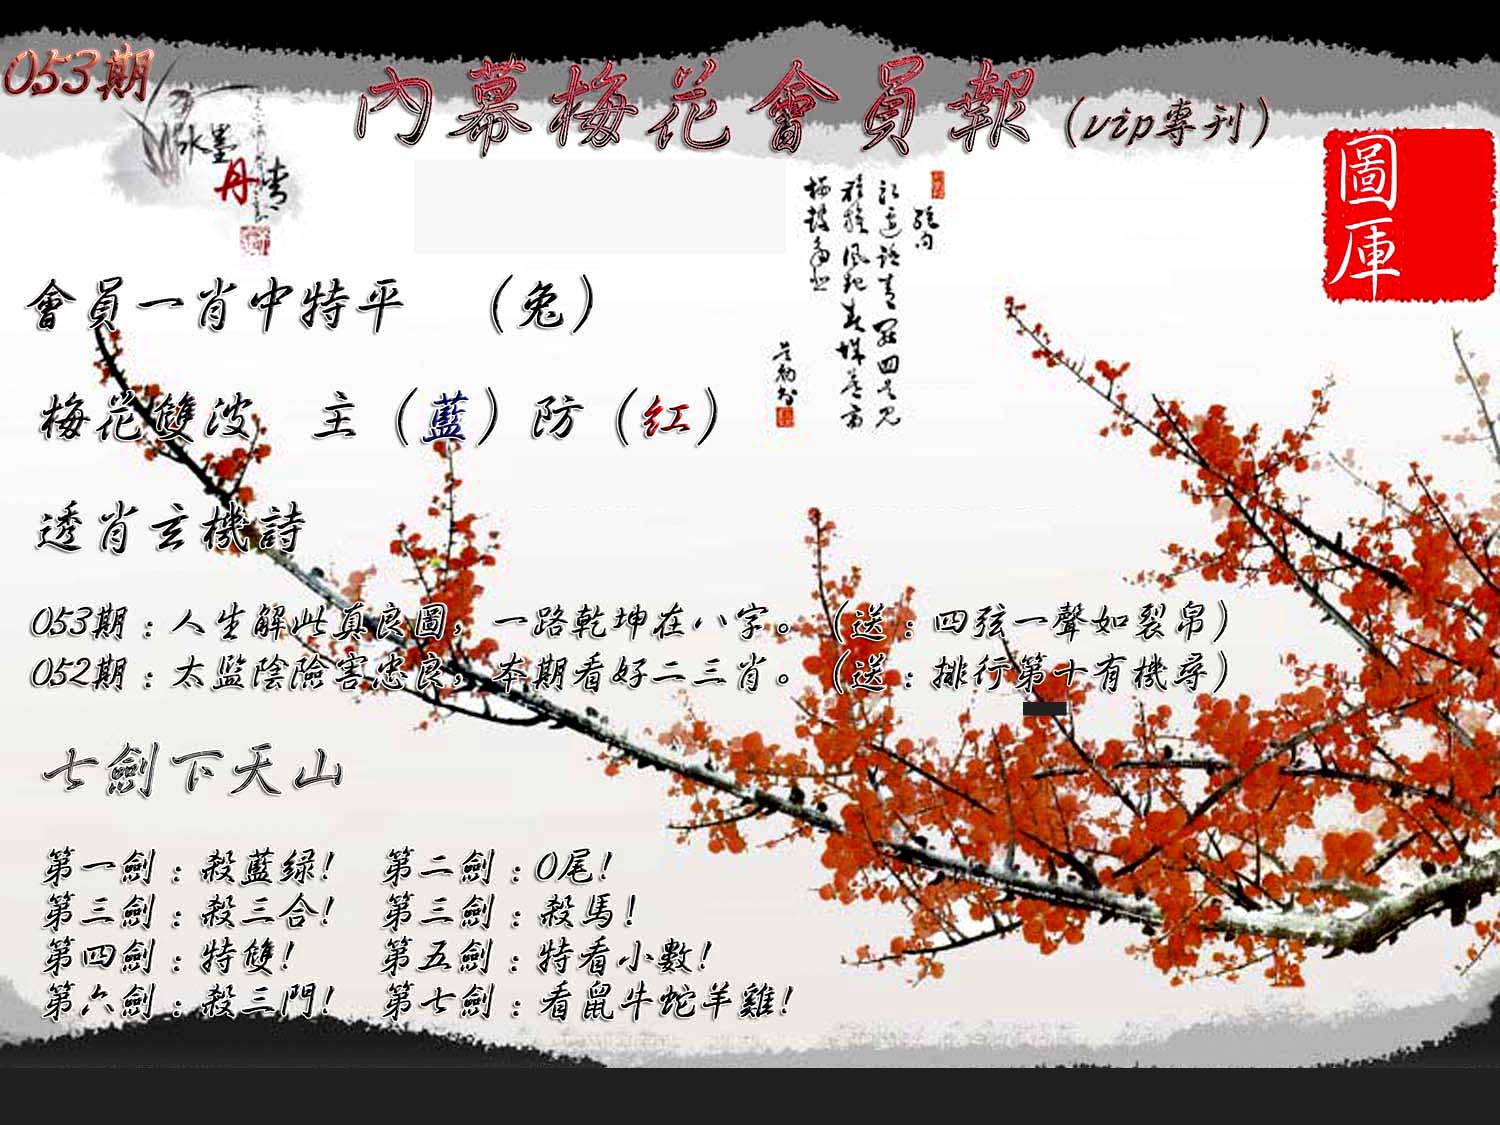 053期
內幕梅花會員報（vip專刊）
水墨
丹青
圖庫
會員一肖中特平 （兔）
梅花雙波 主（藍）防（紅）
透肖玄機詩
053期：人生解此真良圖，一路乾坤在八字。（送：四弦一聲如裂帛）
052期：太監陰險害忠良，本期看好二三肖。（送：排行第十有機尋）
七劍下天山
第一劍：殺藍绿! 第二劍：0尾!
第三劍：殺三合! 第三劍：殺馬!
第四劍：特雙! 第五劍：特看小數!
第六劍：殺三門! 第七劍：看鼠牛蛇羊雞!